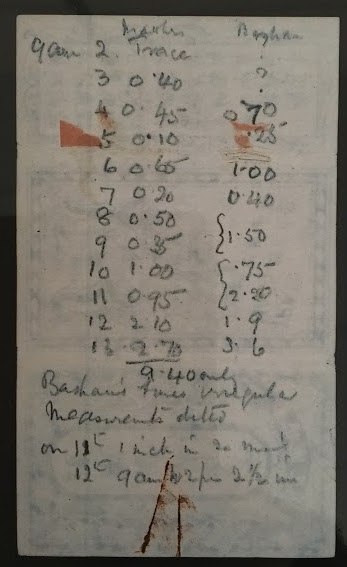 Basham
9am 2. Trace ?
3 0.40 ?
4 0.45 0.70
5 0.10 .25
6 0.65 1.00
7 0.20 0.40
8 0.50
9 0.35 1.50
10 1.00 .75
11 0.95 2.20
12 2.10 1.9
13 2.70 3.6
9.40 only
Basham's times irregular
Measurements ditto
on 11th 1 inch in 20 mins
12th 9am to 2pm 2½ ins